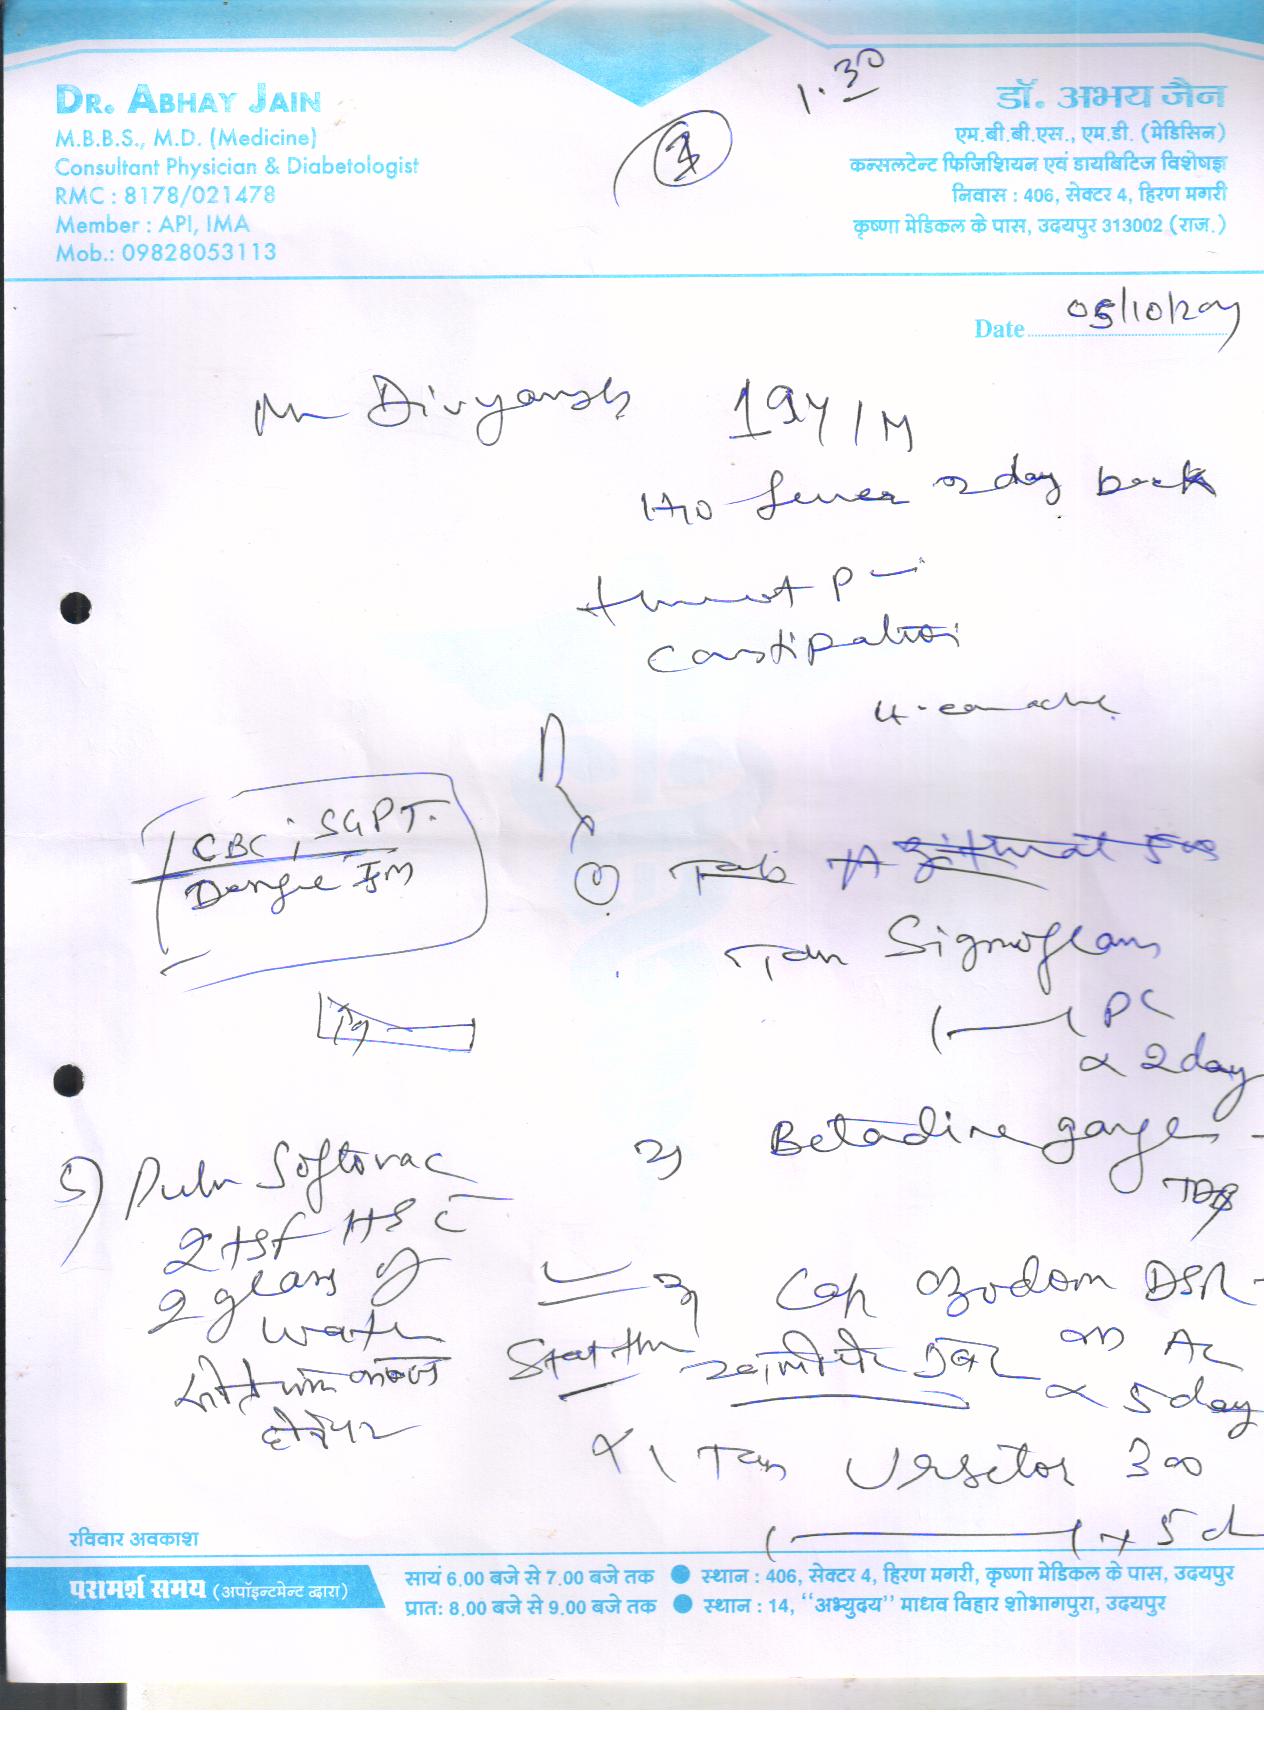 DR. ABHAY JAIN
M.B.B.S., M.D. (Medicine)
Consultant Physician & Diabetologist
RMC : 8178/021478
Member : API, IMA
Mob.: 09828053113
1.30
डॉ. अभय जैन
एम.बी.बी.एस., एम.डी. (मेडिसिन)
कन्सलटेन्ट फिजिशियन एवं डायबिटिज विशेषज्ञ
निवास : 406, सेक्टर 4, हिरण मगरी
कृष्णा मेडिकल के पास, उदयपुर 313002 (राज.)
Date 05/10/20
Mr Divyansh 19Y/M
H/O fever 2 day back
throat P
Constipation
CBC; SGPT.
Dengue IgM
① Tab
Tab Signoflam
PC
x 2 day
2) Betadine gargle -
TDS
3) Cap Ozodom DSR -
OD AC
खाली पेट
x 5 day
Tab Ursetor 300
x 5 d
5) Pulv Softovac
2 tsf HS c
2 glass of
water
कब्ज
होने पर
रविवार अवकाश
परामर्श समय (अपॉइन्टमेन्ट द्वारा)
सायं 6.00 बजे से 7.00 बजे तक ● स्थान : 406, सेक्टर 4, हिरण मगरी, कृष्णा मेडिकल के पास, उदयपुर
प्रातः 8.00 बजे से 9.00 बजे तक ● स्थान : 14, ‘‘अभ्युदय’’ माधव विहार शोभागपुरा, उदयपुर